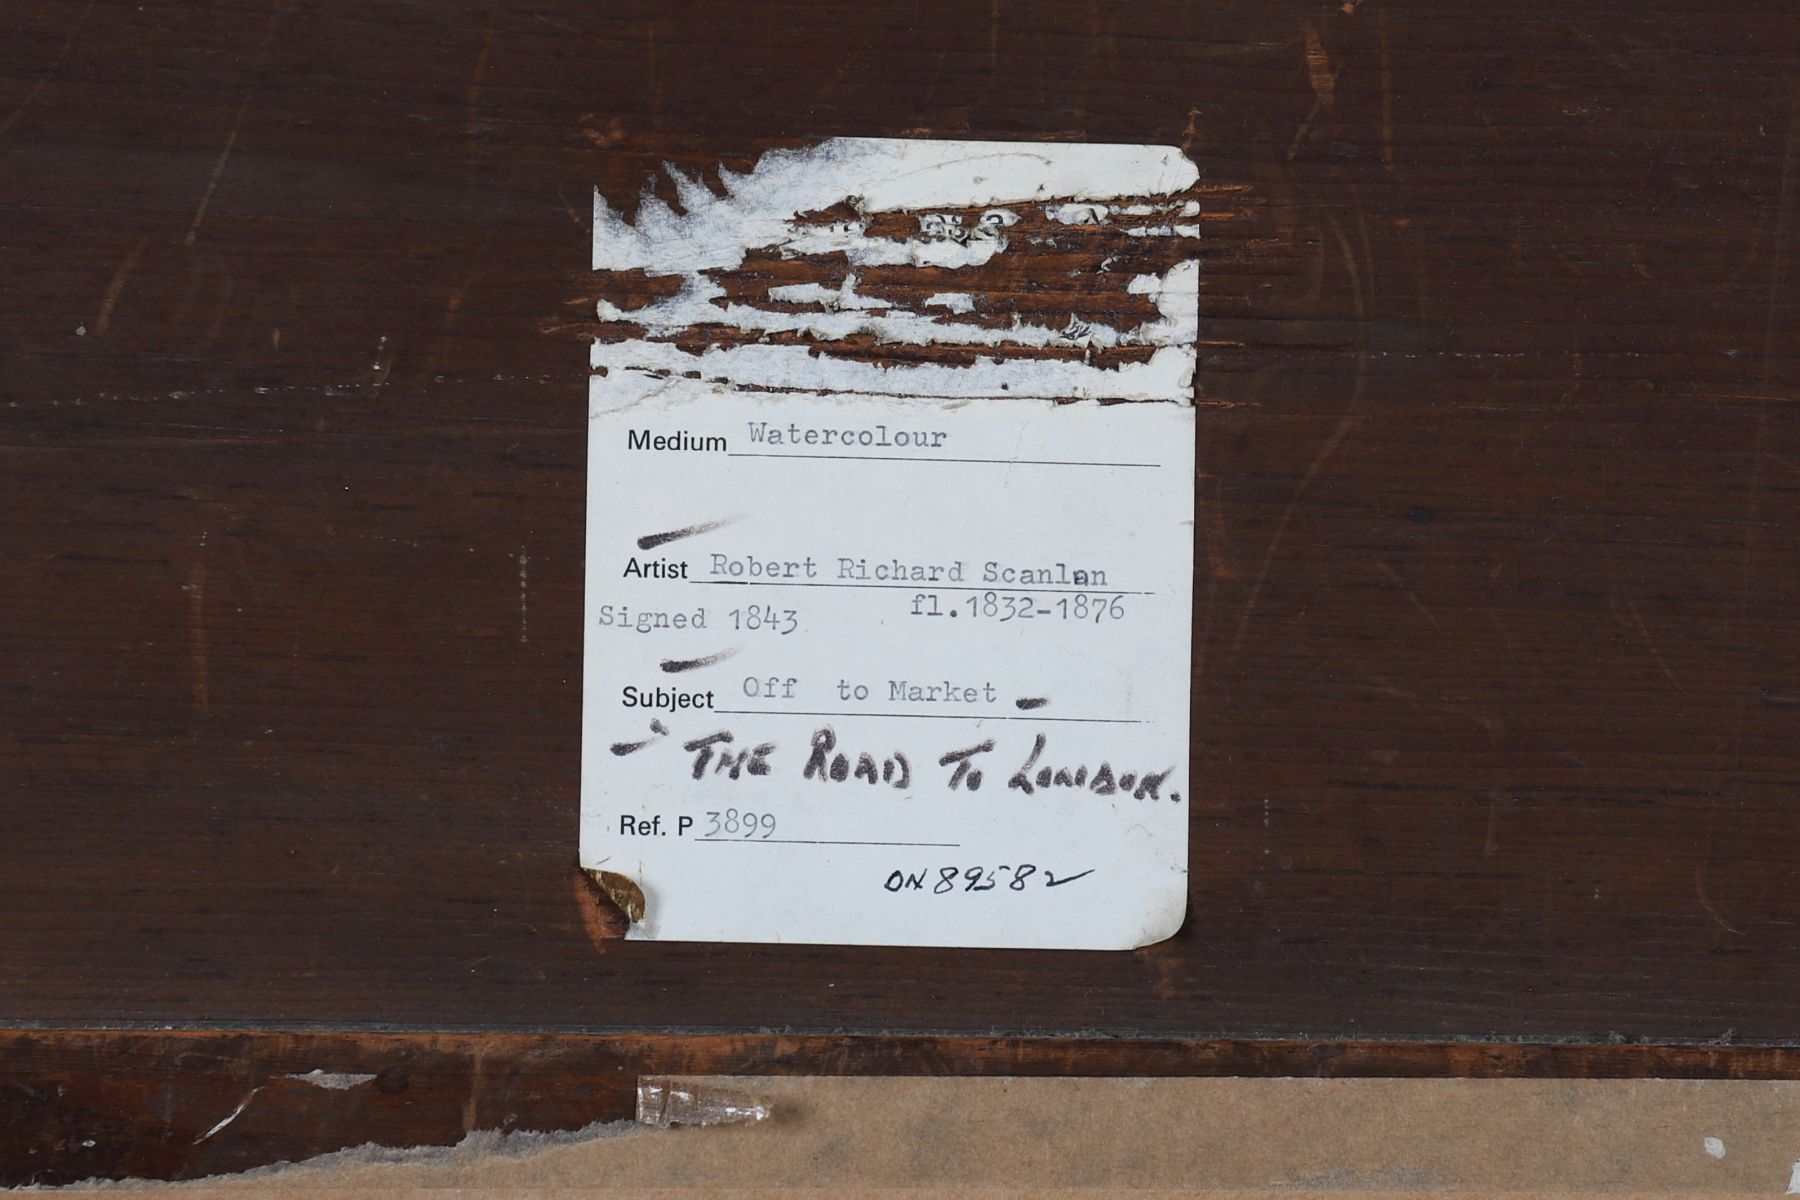 Medium Watercolour
Artist Robert Richard Scanlan
Signed 1843 fl.1832-1876
Subject Off to Market -
- THE ROAD TO LONDON.
Ref. P 3899
ON 89582